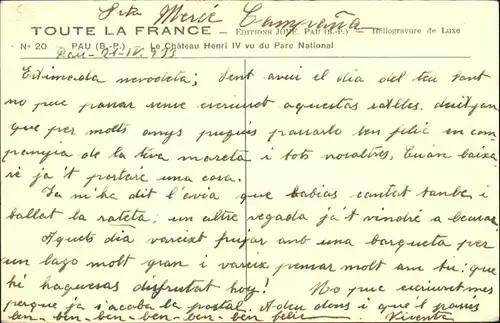 Srta Mercé Campraña
TOUTE LA FRANCE — EDITIONS JOVE, PAU (B.-P.) — Héliogravure de Luxe
N° 20 PAU (B.-P.) Le Château Henri IV vu du Parc National
Pau - 21-IV-933
Estimada nevodeta; Sent avui el dia del teu sant
no puc passar sense escriuret aquestas ratlles, desitjan
que per molts anys puguis passarlo ben felic en com
panyia de la teva mareta i tots nosaltres, Cuan baixa
ré ja't portaré una cosa.
Ja m'ha dit l'avia que habias cantat tambe i
ballat la rateta; un altre vegada ja't vindré a beurar.
Aquets dia vareixt pujar amb una barqueta per
un lago molt gran i vareix pensar molt am tu; que
hi hagueras disfrutat hoy! No puc escriuret mes
perque ja s'acaba la postal. Adeu dons i que'l passis
ben-ben-ben-ben-ben-ben felic. Vicenta